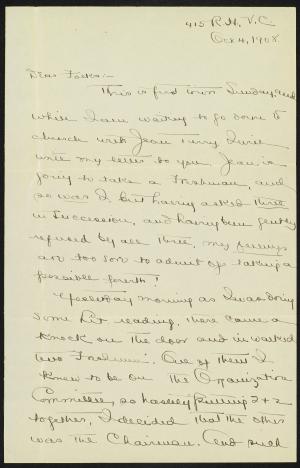 415 R.H., V.C.
Oct 4, 1908.
Dear Folks:-
This is fred town Sunday, and
while I am waiting to go down to
church with Jean Terry, I will
write my letter to you. Jean is
going to take a Freshman, and
so was I, but having asked three
in succession, and having been gently
refused by all three, my feelings
are too sore to admit of talking a
possible fourth!
Yesterday morning as I was doing
some Lit reading, there came a
knock on the door and in walked
two Freshmen. One of them I
knew to be on the Organization
Committee, so hastily putting 2 + 2
together, I decided that the other
was the Chairman. And such